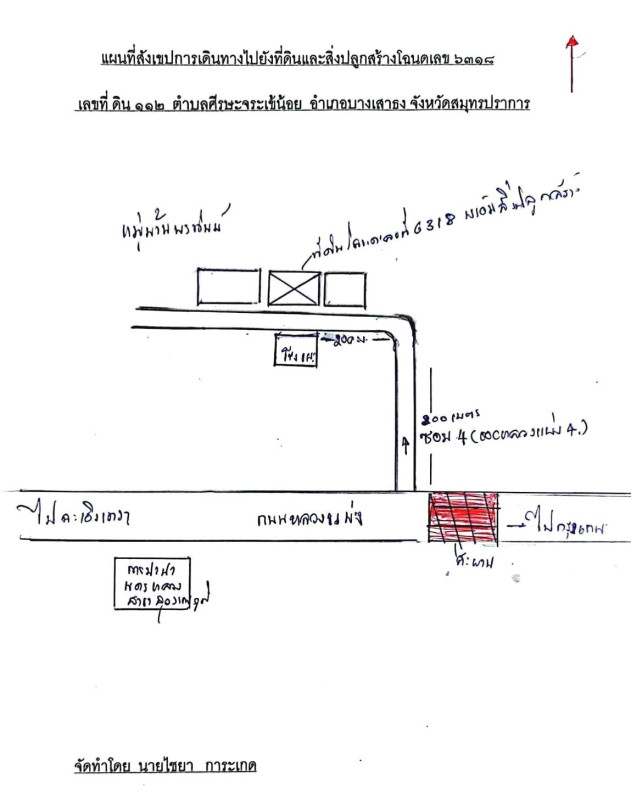 แผนที่สังเขปการเดินทางไปยังที่ดินและสิ่งปลูกสร้างโฉนดเลข ๖๓๑๘
เลขที่ ดิน ๑๑๒ ตำบลศีรษะจระเข้น้อย อำเภอบางเสาธง จังหวัดสมุทรปราการ
ที่ดินโฉนดเลขที่ 6318 พร้อมสิ่งปลูกสร้าง
หมู่บ้าน
20 ม.
200 เมตร
ซอย 4 (หลวงแพ่ง 4.)
ไปฉะเชิงเทรา
ถนนหลวงแพ่ง
ไปกรุงเทพ
สะพาน
การประปา
นครหลวง
สาขา สุวรรณภูมิ
จัดทำโดย นายไชยา การะเกด